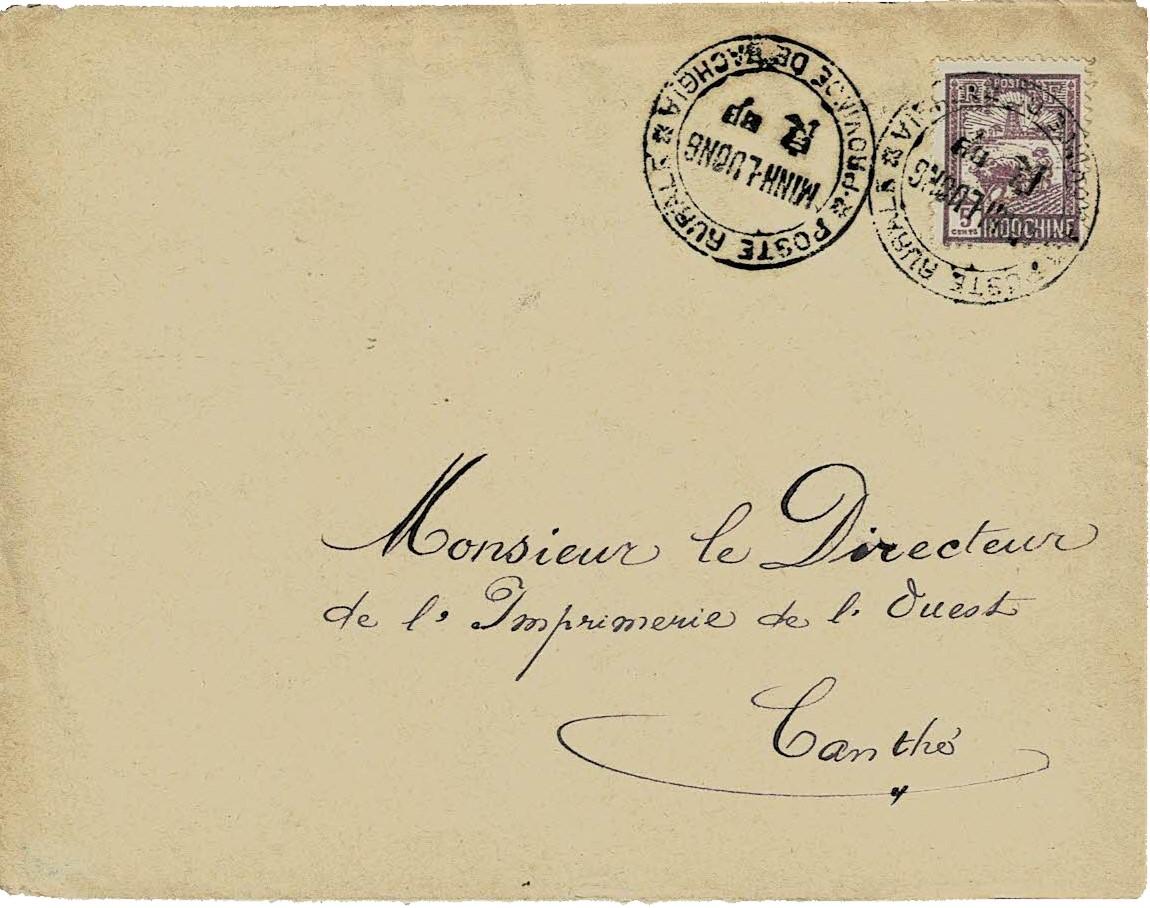 POSTE RURALE
PROVINCE DE RACHGIA
MINH-LUONG
POSTES
RF
5
CENTS
INDOCHINE
POSTE RURALE
Monsieur le Directeur
de l'Imprimerie de l'Ouest
Canthó